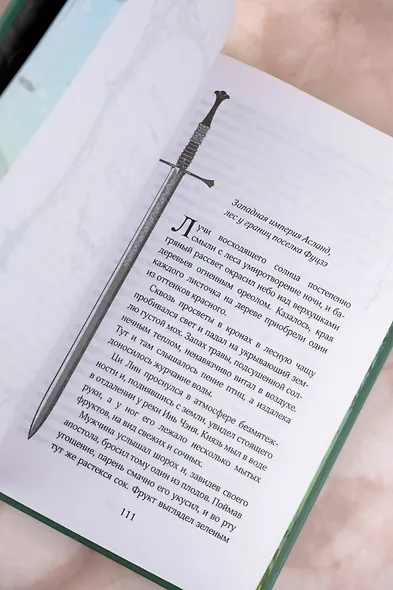 Западная империя Асланд,
лес у границ поселка Фуцзэ
Лучи восходящего солнца постепенно
смыли с леса умиротворение ночи, и ба-
гряный рассвет окрасил небо над верхушками
деревьев огненным ореолом. Казалось, края
каждого листочка на дереве приобрели один
из оттенков красного.
Сквозь просветы в кронах в лесную чащу
пробивался свет и падал на укрывающий зем-
лю густой мох. Запах травы, подсушенной сол-
нечным теплом, ненавязчиво витал в воздухе.
Тут и там слышалось пение птиц, а издалека
доносилось журчание воды.
Ци Лин проснулся в атмосфере безмятеж-
ности и, поднявшись с земли, увидел стоящего
в отдалении у реки Инь Чэня. Князь мыл в воде
руки, а у ног его лежало несколько мытых
фруктов, на вид свежих и сочных.
Мужчина услышал шорох и, завидев своего
апостола, бросил тому один из плодов. Поймав
угощение, парень смачно его укусил, и во рту
тут же растекся сок. Фрукт выглядел зеленым
111